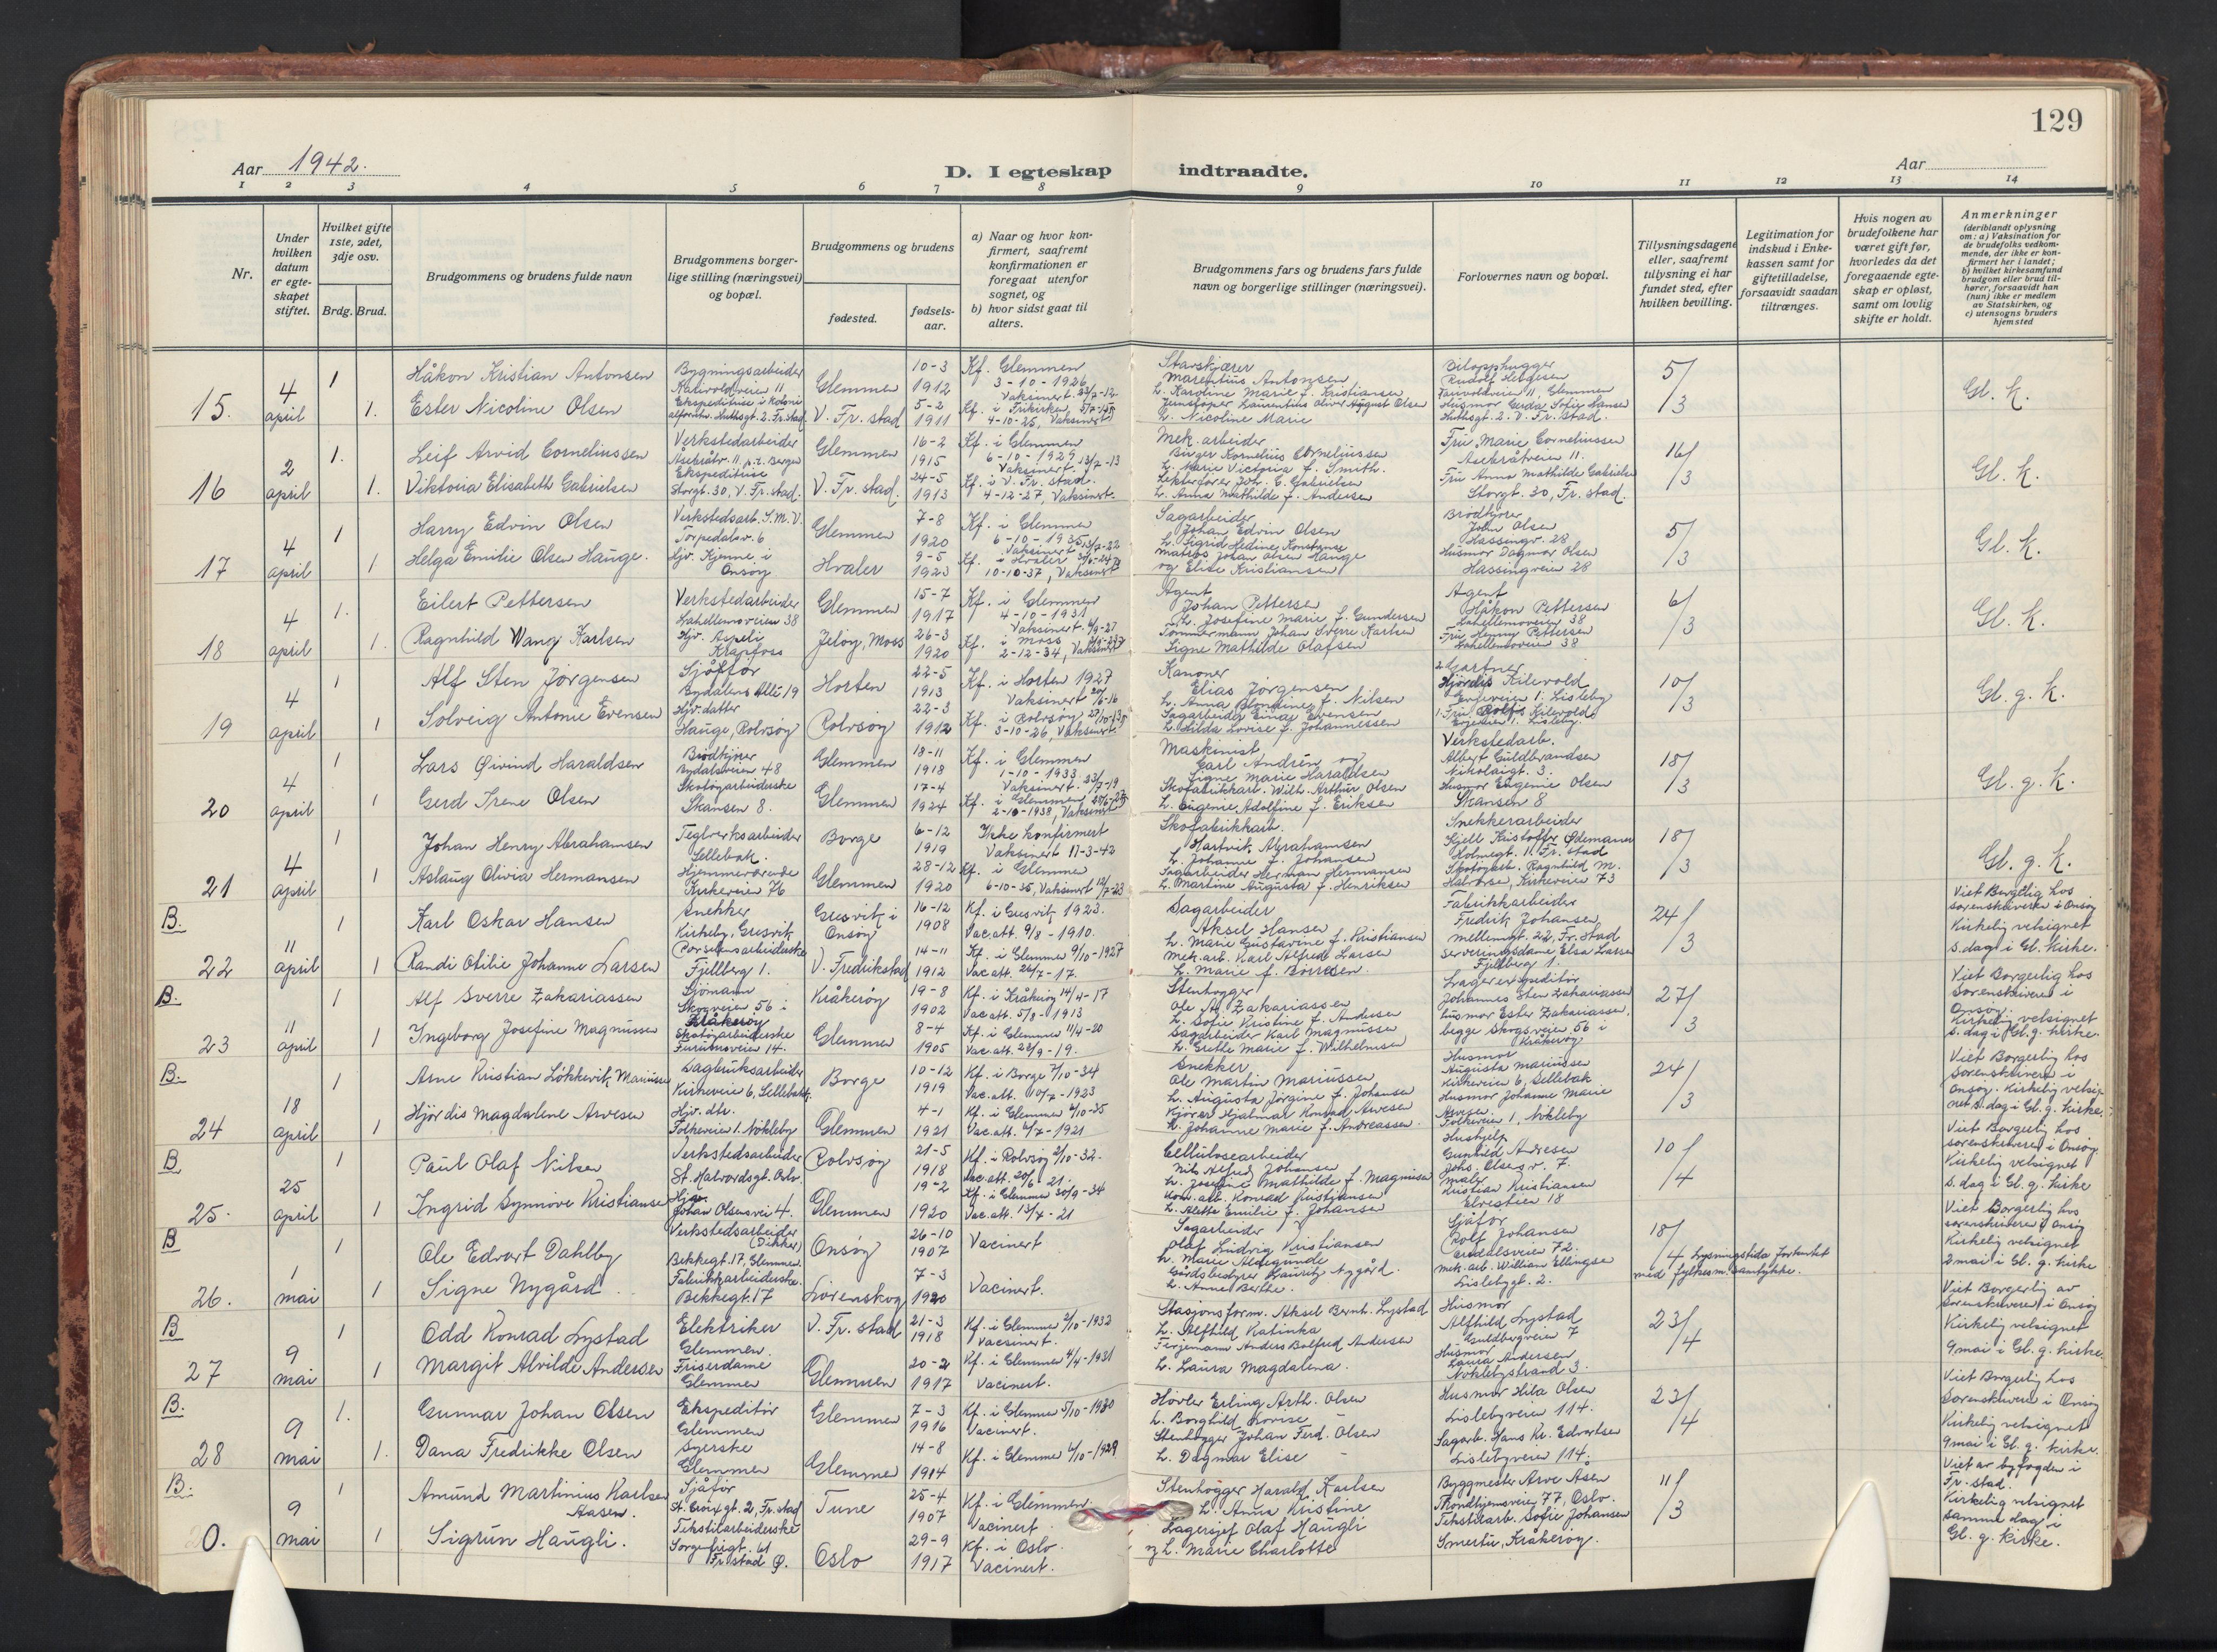 129
Aar 1942.
D. I egteskap indtraadte.
Aar
1 2 3 4 5 6 7 8 9 10 11 12 13 14
Nr.
Under hvilken datum er egte-skapet stiftet.
Hvilket gifte 1ste, 2det, 3dje osv.
Brdg. Brud.
Brudgommens og brudens fulde navn
Brudgommens borger-lige stilling (næringsvei) og bopæl.
Brudgommens og brudens
fødested.
fødsels-aar.
a) Naar og hvor kon-firmert, saafremt konfirmationen er foregaat utenfor sognet, og
b) hvor sidst gaat til alters.
Brudgommens fars og brudens fars fulde navn og borgerlige stillinger (næringsvei).
Forlovernes navn og bopæl.
Tillysningsdagene eller, saafremt tillysning ei har fundet sted, efter hvilken bevilling.
Legitimation for indskud i Enke-kassen samt for giftetilladelse, forsaavidt saadan tiltrænges.
Hvis nogen av brudefolkene har været gift før, hvorledes da det foregaaende egte-skap er opløst, samt om lovlig skifte er holdt.
Anmerkninger (deriblandt oplysning om: a) Vaksination for de brudefolks vedkom-mende, der ikke er kon-firmert her i landet; b) hvilket kirkesamfund brudgom eller brud til-hører, forsaavidt han (hun) ikke er medlem av Statskirken, og c) utensogns bruders hjemsted
15. 4 april 1 1.
Håkon Kristian Antonsen
Bygningsarbeider
Glemmen
10-3 1912
Kf. Glemmen 3-10-1926 Vaksinert
Marentius Antonsen
L. Karoline Marie f. Kristiansen
Bilopphugger
Rudolf Helgesen
5/3
Gl. K.
Ester Nicoline Olsen
V. Fr. stad
5-2 1911
Kf. i Frikirken 4-10-25, Vaksinert
L. Nicoline Marie
Husmor Gerda Sofie Hansen
16 2 april 1. 1.
Leif Arvid Corneliussen
Verkstedarbeider
Glemmen
16-2 1915
Kf. i Glemmen 6-10-1929 Vaksinert 13/7-13
Mek. arbeider
Birger Kornelius Corneliussen
L. Marie Victoria f. Smith.
Fru Marie Corneliussen
Åsebråtveien 11.
16/3
Gl. K.
Viktoria Elisabeth Gabrielsen
Ekspeditrise
Storgt. 30, V. Fr. stad.
V. Fr. stad.
24-5 1913
Kf. i V. Fr. stad. 4-12-27, Vaksinert.
L. Anna Mathilde f. Andersen
Fru Anna Mathilde Gabrielsen
Storgt. 30, Fr. stad.
17 4 april 1 1
Harry Edvin Olsen
Verkstedsarb. S.M.V.
Torpedalsv. 6
Glemmen
7-8 1920
Kf. i Glemmen 6-10-1935 Vaksinert
Sagarbeider
Johan Edvin Olsen
L. Sigrid Hedine Konstanse
Brödkjører
John Olsen
Hassingv. 28
5/3
Gl. K.
Helga Emilie Olsen Hauge.
Hjv. Kjenne i Onsøy
Hvaler
9-5 1923
Kf. i Hvaler 10-10-37, Vaksinert
Matros Johan Olsen Hauge
og Elise Kristiansen
Husmor Dagmar Olsen
Hassingveien 28
18 4 april 1. 1.
Eilert Pettersen
Verkstedarbeider
Lahellemoveien 38
Glemmen
15-7 1917
Kf. i Glemmen 4-10-1931 Vaksinert
Agent
Johan Pettersen
L. Josefine Marie f. Gundersen
Agent
Håkon Pettersen
Lahellemoveien 38
6/3
Gl. K.
Ragnhild Wang Karlsen
Hjv. Aspeli Krapfoss
Jeløy, Moss
26-3 1920
Kf. i Moss 2-12-34, Vaksinert
Tømmermann Johan Sverre Karlsen
Signe Mathilde Olafsen
Fru Henny Pettersen
Lahellemoveien 38
19 4 april 1 1
Alf Sten Jørgensen
Sjåffør
Bydalens Alle 19
Horten
22-5 1913
Kf. i Horten 1927 Vaksinert
Kanoner
Elias Jørgensen
L. Anna Blondine f. Nilsen
2. Gartner
Hjördis Kilevold
Engeveien 1. Lisleby
10/3
Gl. g. K.
Solveig Antonie Evensen
Hjv. datter
Hauge, Rolvsøy
Rolvsøy
22-3 1912
Kf. i Rolvsøy 3-10-26, Vaksinert
Sagarbeider Einar Evensen
L. Hilda Lovise f. Johannessen
1. Fru Rolfs Kilevold
Engeveien 1. Lisleby.
20 4 april 1 1
Lars Øivind Haraldsen
Brödkjører
Bydalsveien 48
Glemmen
18-11 1918
Kf. i Glemmen 1-10-1933 Vaksinert 23/7-19
Maskinist
Carl Andrén og
Signe Marie Haraldsen
Verkstedarb.
Albert Guldbrandsen
Nikolaigt. 3.
18/3
Gl. g. K.
Gerd Irene Olsen
Skotøyarbeiderske
Skansen 8.
Glemmen
17-4 1924
Kf. i Glemmen 2-10-1938, Vaksinert
Skofabrikkarb. Wilh. Arthur Olsen
L. Eugenie Adolfine f. Eriksen
Husmor Eugenie Olsen
Skansen 8
21 4 april 1 1
Johan Henry Abrahamsen
Teglverksarbeider
Sellebak.
Borge
6-12 1919
Ikke konfirmert Vaksinert 11-3-42
Skofabrikkarb.
Hartvik Abrahamsen
L. Johanne f. Johansen
Snekkerarbeider
Kjell Kristoffer Ødemann
Holmegt. 11 Fr. stad
18/3
Gl. g. K.
Aslaug Olivia Hermansen
Hjemmeværende
Kirkeveien 76
Glemmen
28-12 1920
Kf. i Glemmen 6-10-35, Vaksinert
Sagarbeider Herman Hermansen
L. Martine Augusta f. Henriksen
Skotøyarb. Ragnhild M.
Halvorsen, Kirkeveien 73
B. 22 11 april 1 1
Karl Oskar Hansen
Snekker
Kirkeby, Gresvik
Gresvik i Onsøy
16-12 1908
Kf. i Gresvik 1923. Vac. att. 9/8-1910.
Sagarbeider
Aksel Hansen
L. Marie Gustavine f. Kristiansen
Fabrikkarbeider
Fredrik Johansen,
Mellemgt. 22, Fr. stad
24/3
Viet Borgerlig hos sorenskriveren i Onsøy Kirkelig velsignet s. dag i Gl. Kirke.
Randi Otilie Johanne Larsen
Porselensarbeiderske
Fjellberg 1.
V. Fredrikstad
14-11 1912
Kf. i Glemmen 9/10-1927 Vac. att. 26/7-17.
Mek. arb. Karl Alfred Larsen
L. Marie f. Børresen.
Serveringsdame Elsa Larsen
Fjellberg 1.
B. 23 11 april 1 1
Alf Sverre Zakariassen
Sjømann
Skogveien 56 i Kråkerøy
Kråkerøy
19-8 1902
Kf. i Kråkerøy 14/4-17 Vac. att. 5/8-1913
Stenhogger
Ole A. Zakariassen
L. Sofie Kristine f. Andersen
Lagerexpeditør
Johannes Sten Zakariassen
husmor Ester Zakariassen,
begge Skogsveien 56 i Kråkerøy
27/3
Viet Borgerlig hos sorenskriveren i Onsøy. Kirkelig velsignet s. dag i Gl. g. kirke.
Ingeborg Josefine Magnussen
Skotøyarbeiderske
Furumoveien 14.
Glemmen
8-4 1905
Kf. i Glemmen 11/4-20 Vac. att. 22/9-19.
Sagarbeider Karl Magnussen
L. Grethe Marie f. Wilhelmsen
B. 24 18 april 1 1
Arne Kristian Løkkevik Mariussen
Sagbruksarbeider
Kirkeveien 6, Sellebakk.
Borge
10-12 1919
Kf. i Borge 7/10-34 Vac. att. 10/7-1923
Snekker
Ole Martin Mariussen
L. Augusta Jørgine f. Johansen
Husmor
Augusta Mariussen
Kirkeveien 6, Sellebak
24/3
Viet Borgerlig hos sorenskriveren i Onsøy. Kirkelig velsig-net s. dag i Gl. g. Kirke.
Hjördis Magdalene Arvesen
Hjv. dtr.
Folkeveien 1. Nøkleby
Glemmen
4-1 1921
Kf. i Glemmen 6/10-35 Vac. att. 6/7-1921
Kjører Hjalmar Konrad Arvesen
L. Johanne Marie f. Andreassen.
Husmor Johanne Marie
Arvesen.
Folkeveien 1, Nøkleby
B 25. 25 april 1 1
Paul Olaf Nilsen
Verkstedsarbeider
St. Halvordsgt. Oslo.
Rolvsøy
21-5 1918
Kf. i Rolvsøy 2/10-32. Vac. att. 20/6-21.
Cellulosearbeider
Nils Alfred Johansen
L. Josefine Mathilde f. Magnussen
Hushjelp
Gunhild Andresen
Johs. Olsens v. 7.
10/4
Viet Borgerlig hos sorenskriveren i Onsøy. Kirkelig velsignet s. dag i Gl. g. kirke
Ingrid Synnöve Kristiansen
Hjv.
Johan Olsensvei 4.
Glemmen
19-2 1920
Kf. i Glemmen 30/9-34 Vac. att. 13/7-21
Kom. arb. Konrad Kristiansen
L. Alette Emilie f. Johansen
Maler
Kristian Kristiansen
Elvestien 18
B 26. 1 mai 1 1
Ole Edvart Dahlby
Verkstedsarbeider (Dikker)
Bekkegt. 17, Glemmen.
Onsøy
26-10 1907
Vacinert
Sagarbeider
Olaf Ludvig Kristiansen
L. Marie Aldegunde
Sjåfør
Rolf Johansen
Evdalsveien 72.
18/4 Lysningstida forkortet med fylkesm. samtykke.
Viet Borgerlig hos sorenskriveren i Onsøy Kirkelig velsignet 2 mai i Gl. g. kirke
Signe Nygård
Fabrikkarbeiderske.
Bekkegt. 17
Lørenskog
7-3 1920
Vacinert.
Gårdsbestyrer Lauritz Nygård.
L. Anne Berthe.
Mek. arb. William Ellingsen
Lislebygt. 2.
B 27 9 mai 1 1
Odd Konrad Lystad
Elektriker
Glemmen.
V. Fr. stad
21-3 1918
Kf. i Glemmen 2/10-1932 Vacsinert.
Stasjonsform. Aksel Bernh. Lystad
L. Alfhild Katinka
Husmor
Alfhild Lystad
Guldbergveien 7
23/4
Viet Borgerlig av Sorenskriveren i Onsøy Kirkelig velsignet 9 mai i Gl. g. kirke.
Margit Alvilde Andersen
Friserdame
Glemmen
Glemmen
20-2 1917
Kf. i Glemmen 4/4-1931 Vacinert.
Fergemann Anders Bolfred Andersen
L. Laura Magdalena.
Husmor
Laura Andersen
Nøklebystrand 3.
B. 28 9 mai 1. 1.
Gunnar Johan Olsen
Ekspeditør
Glemmen
Glemmen
7-3 1916
Kf. i Glemmen 5/10-1930 Vacinert.
Høvler Erling Arth. Olsen
L. Borghild Lovise
Husmor Hilda Olsen
Lislebyveien 114.
23/4
Viet Borgerlig hos Sorenskriveren i Onsøy Kirkelig velsignet 9 mai i Gl. g. kirke.
Dana Fredrikke Olsen
Syerske
Glemmen
Glemmen
14-8 1914
Kf. i Glemmen 6/10-1929
Stenhogger Johan Ferd. Olsen
L. Dagmar Elise -
Sagarb. Hans Kr. Edvartsen
Lislebyveien 114.
B. 9 mai 1 1
Amund Martinius Karlsen Aasen.
Sjåfør
St. Croixgt. 2, Fr. stad
Tune
25-4 1907
Kf. i Glemmen Vacinert
Stenhogger Harald Karlsen
L. Anna Kristine
Byggmester Arve Åsen
Trondhjemsveien 77, Oslo.
11/3
Viet av byfogden i Fr. stad. Kirkelig velsignet samme dag i Gl. g. kirke.
Sigrun Haugli.
Tekstilarbeiderske
Sorgenfrigt. 61 Fr. stad Ø.
Oslo
29-9 1917
Kf. i Oslo. Vacinert.
Lagersjef Olaf Haugli
og L. Marie Charlotte
Tekstilarb. Sofie Johansen
Smertu, Kråkerøy.